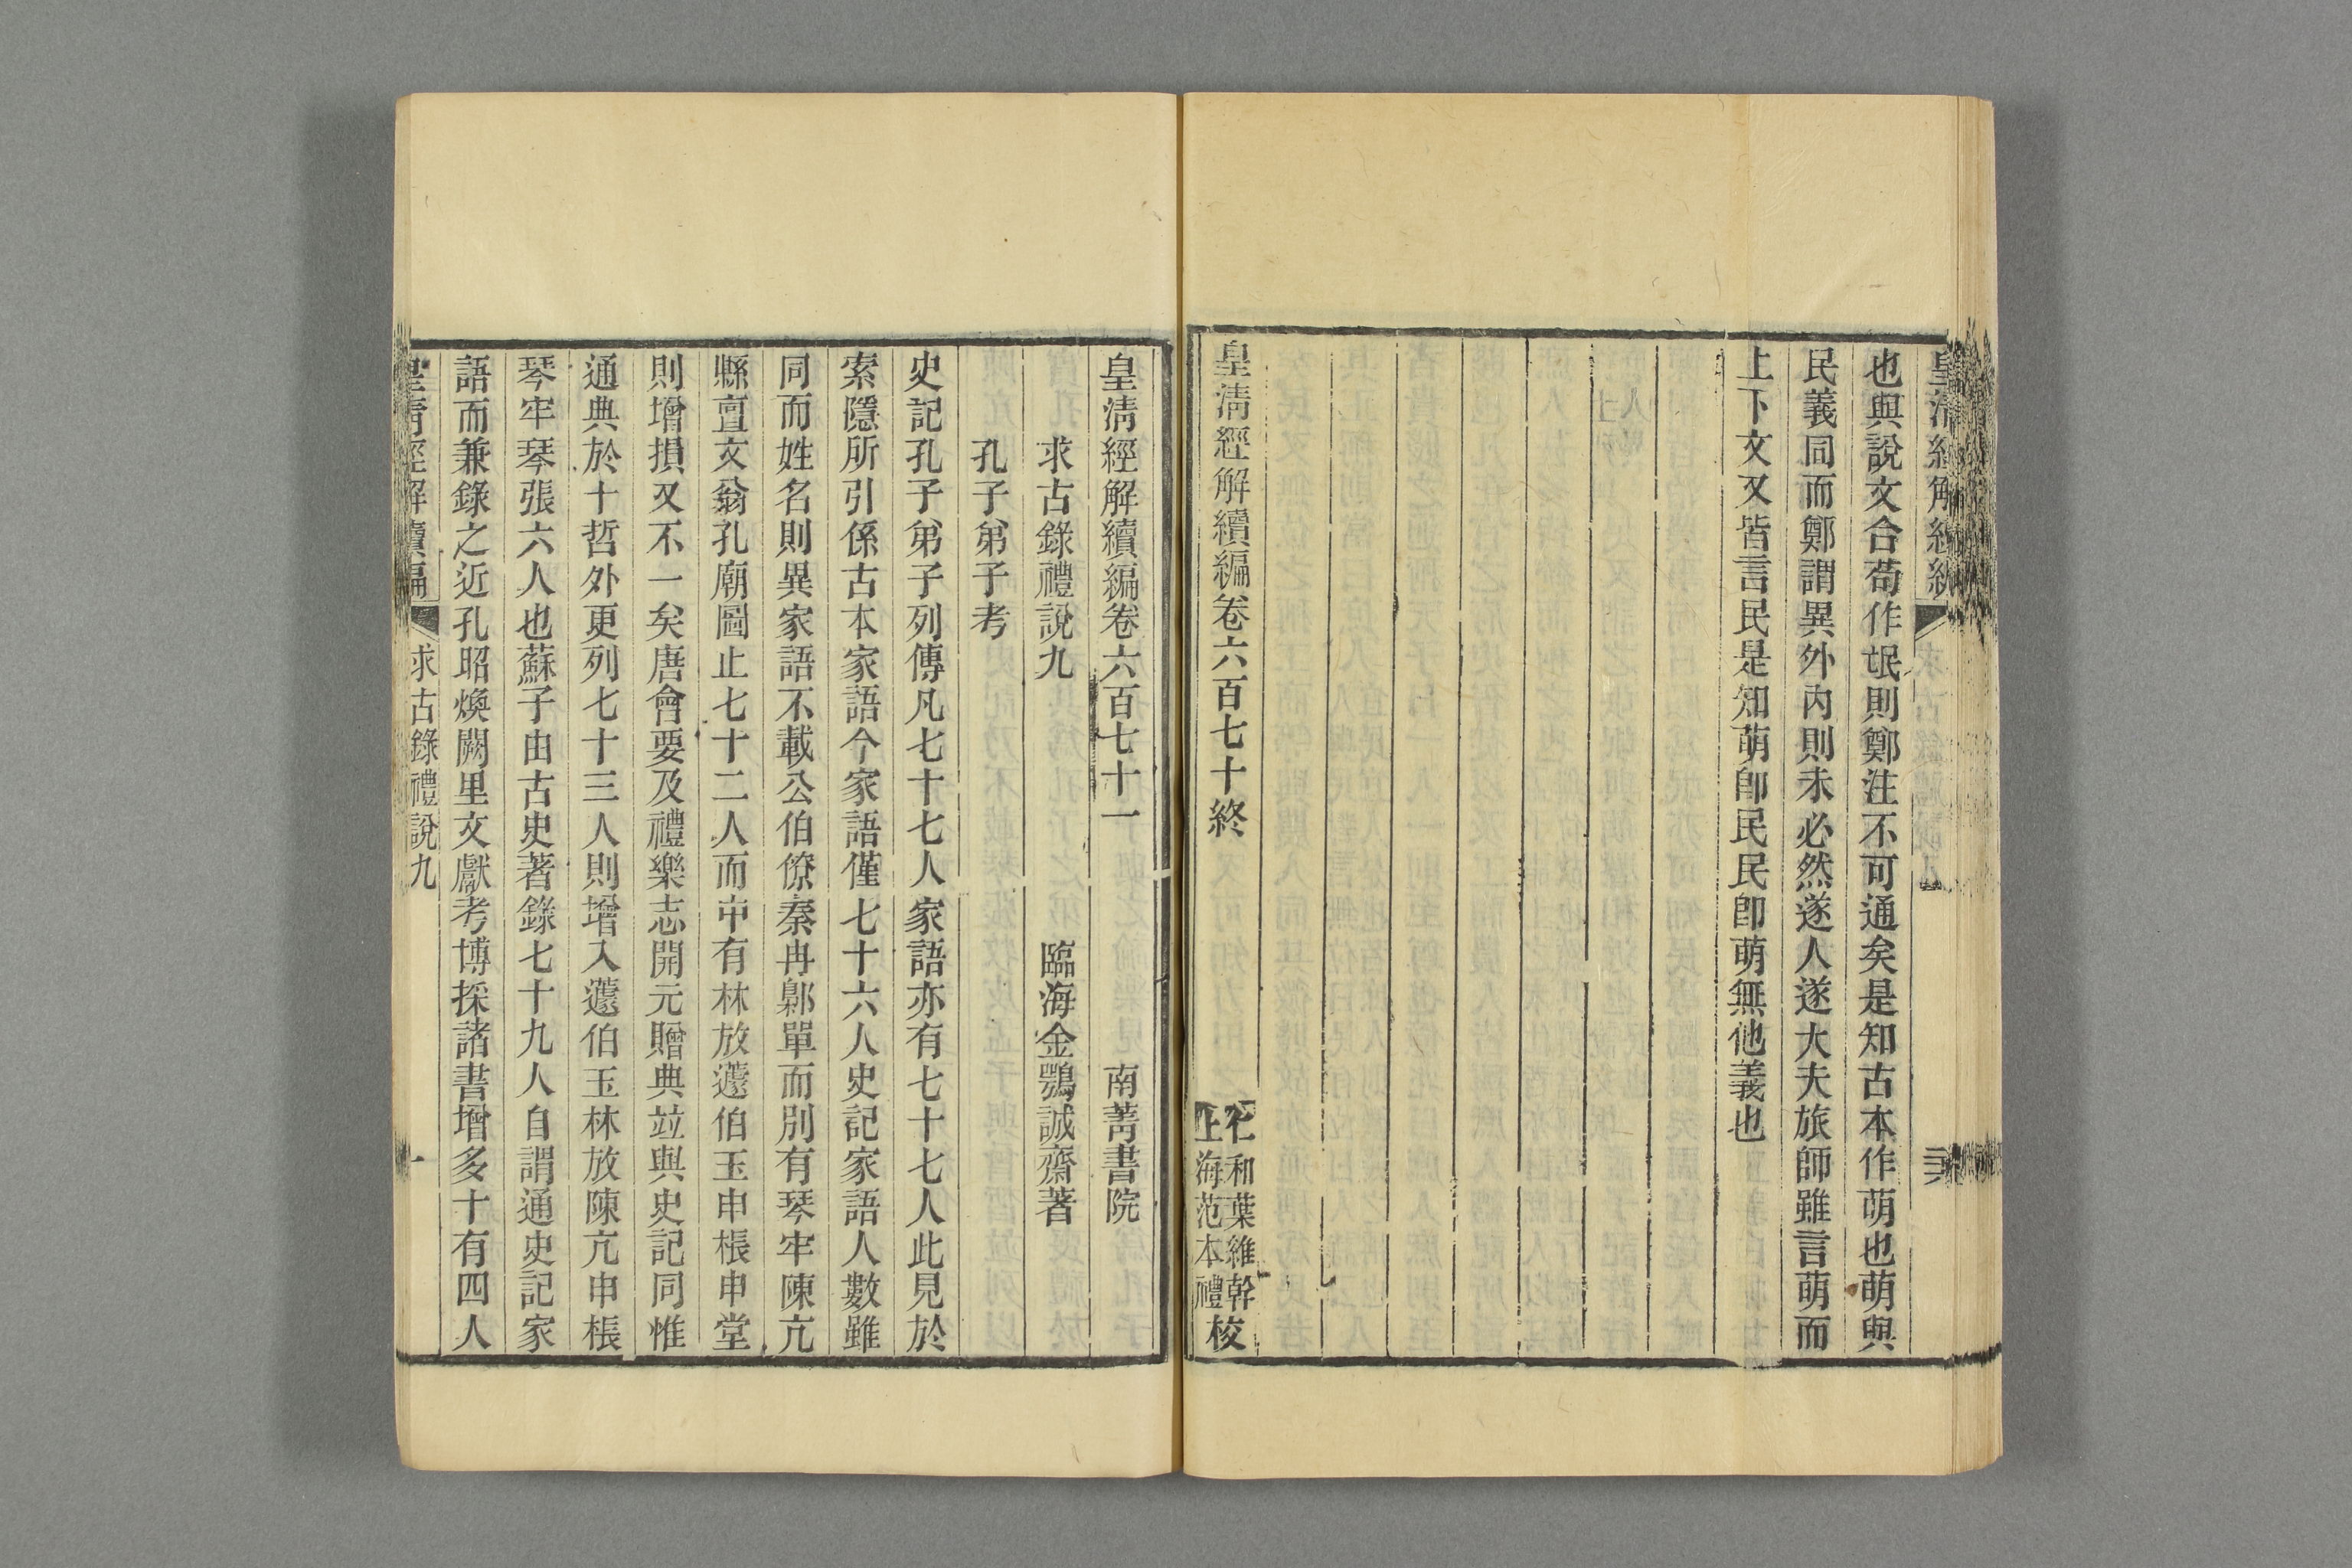 也與說文合苟作氓則鄭注不可通矣是知古本作萌也萌與
民義同而鄭謂異外內則未必然遂人遂大夫旅師雖言萌而
上下文又皆言民是知萌卽民民卽萌無他義也
皇清經解續編卷六百七十終
仁和葉維幹
上海范本禮校
皇清經解續編卷六百七十一
南菁書院
求古錄禮說九
臨海金鶚誠齋著
孔子弟子考
史記孔子弟子列傳凡七十七人家語亦有七十七人此見於
索隱所引係古本家語今家語僅七十六人史記家語人數雖
同而姓名則異家語不載公伯僚秦冉鄡單而別有琴牢陳亢
縣亶文翁孔廟圖止七十二人而中有林放蘧伯玉申棖申堂
則增損又不一矣唐會要及禮樂志開元贈典竝與史記同惟
通典於十哲外更列七十三人則增入蘧伯玉林放陳亢申棖
琴牢琴張六人也蘇子由古史著錄七十九人自謂通史記家
語而兼錄之近孔昭煥闕里文獻考博採諸書增多十有四人
皇清經解續編
求古錄禮說九
一